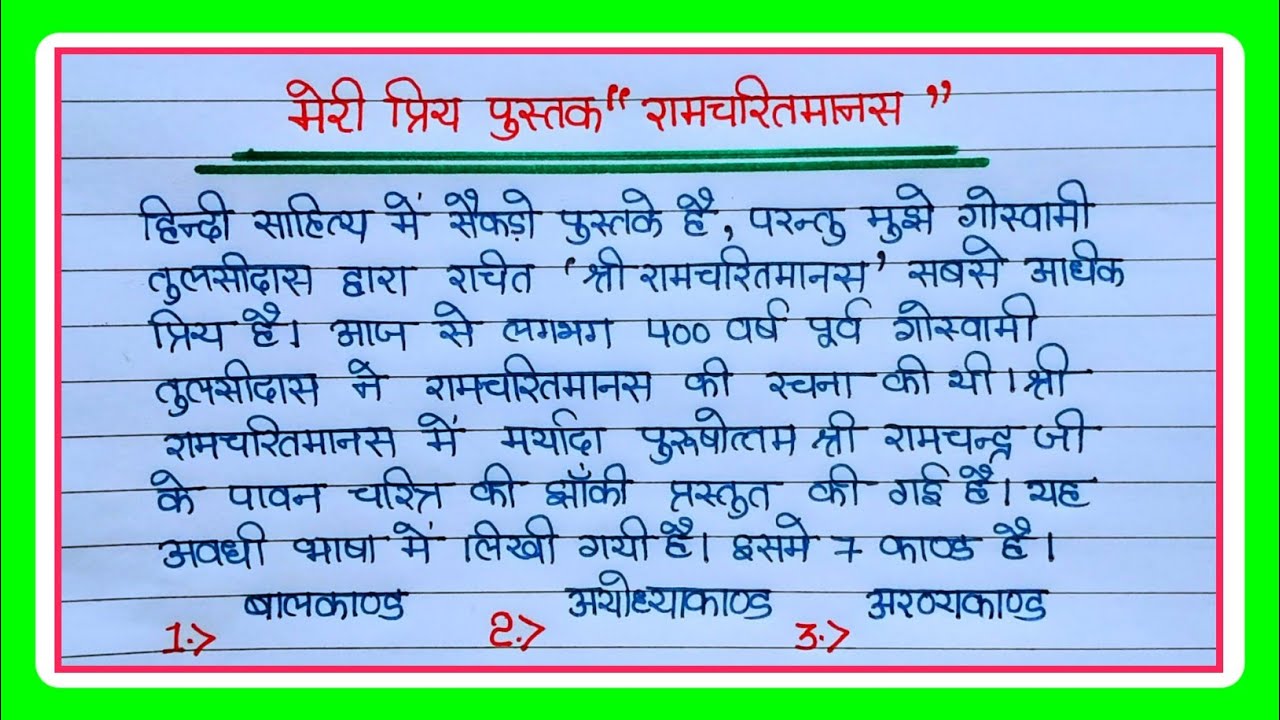 मेरी प्रिय पुस्तक “ रामचरितमानस ”
हिन्दी साहित्य में सैकड़ो पुस्तके है , परन्तु मुझे गोस्वामी
तुलसीदास द्वारा रचित ‘ श्री रामचरितमानस ’ सबसे अधिक
प्रिय है। आज से लगभग 400 वर्ष पूर्व गोस्वामी
तुलसीदास ने रामचरितमानस की रचना की थी । श्री
रामचरितमानस में मर्यादा पुरूषोत्तम श्री रामचन्द्र जी
के पावन चरित्र की झाँकी प्रस्तुत की गई है। यह
अवधी भाषा में लिखी गयी है। इसमे 7 काण्ड है ।
1.> बालकाण्ड 2.> अयोध्याकाण्ड 3.> अरण्यकाण्ड